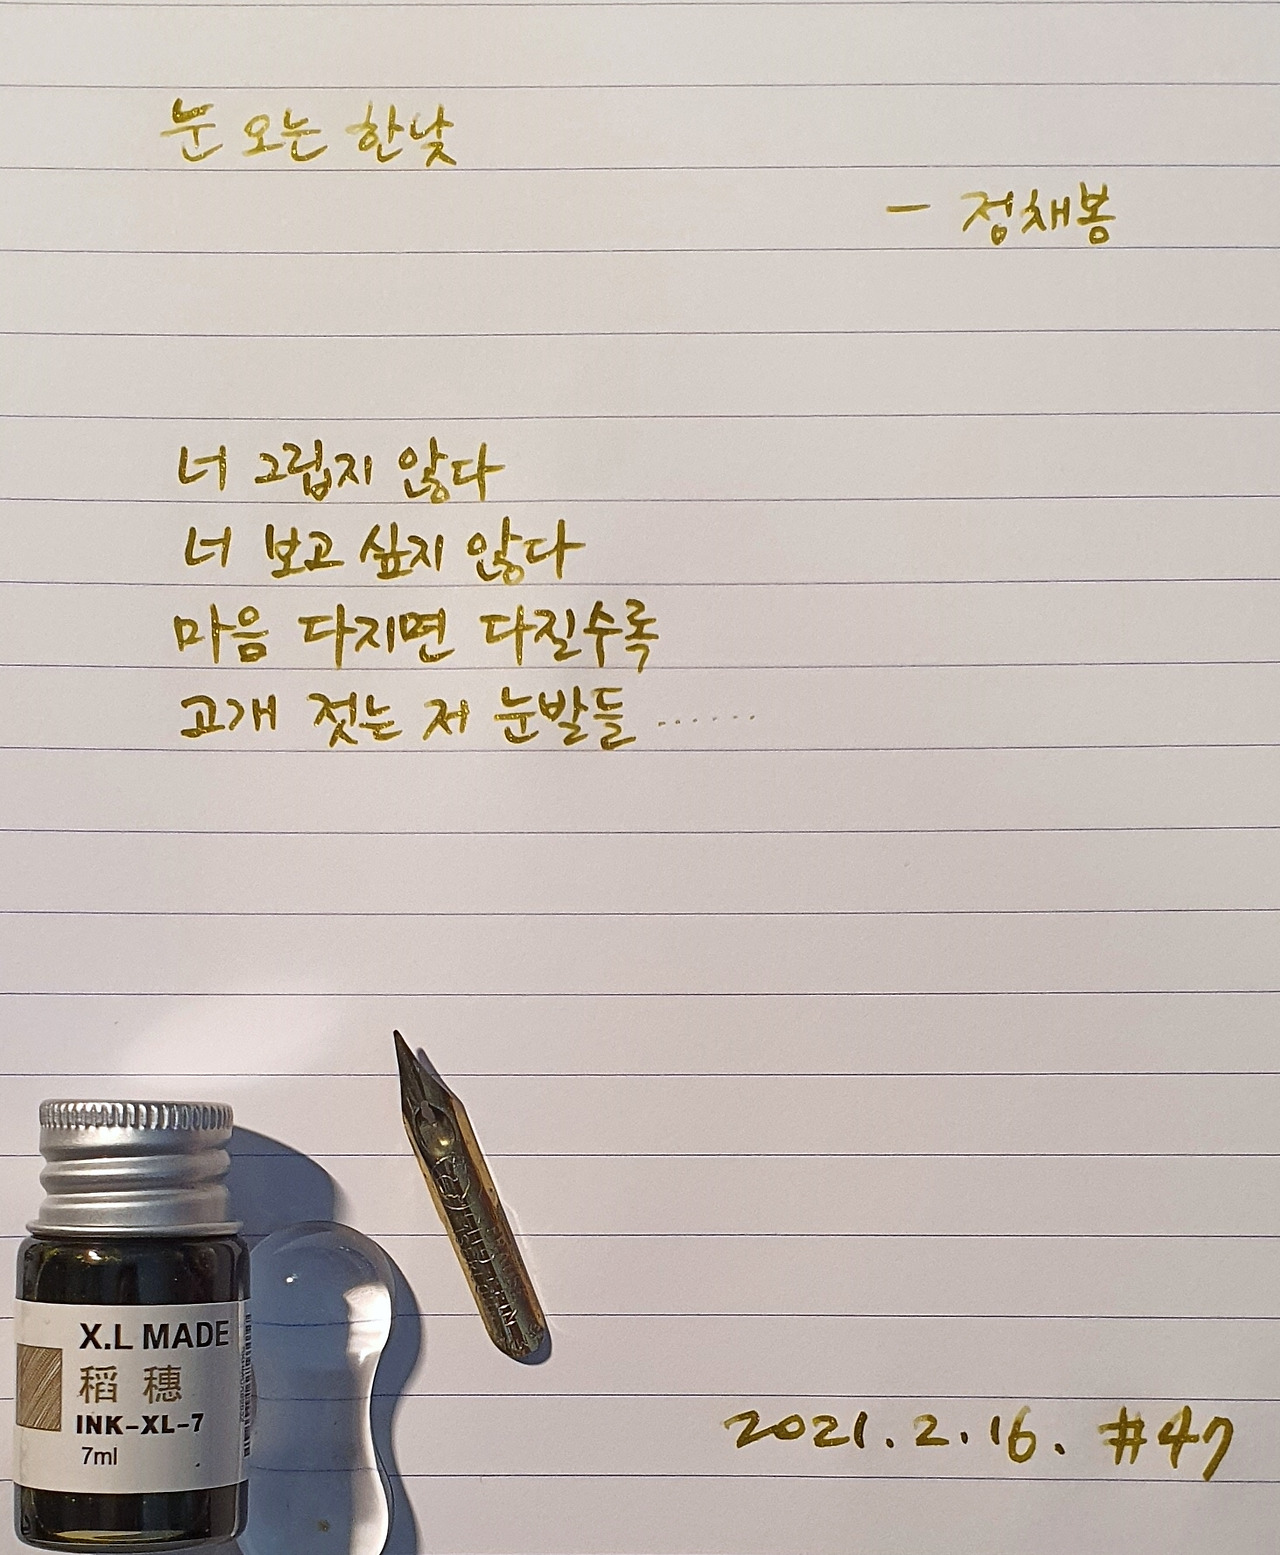 눈 오는 한낮
- 정채봉
너 그립지 않다
너 보고 싶지 않다
마음 다지면 다질수록
고개 젓는 저 눈발들 ......
X.L MADE
稻 穗
INK-XL-7
7ml
2021. 2. 16. #47